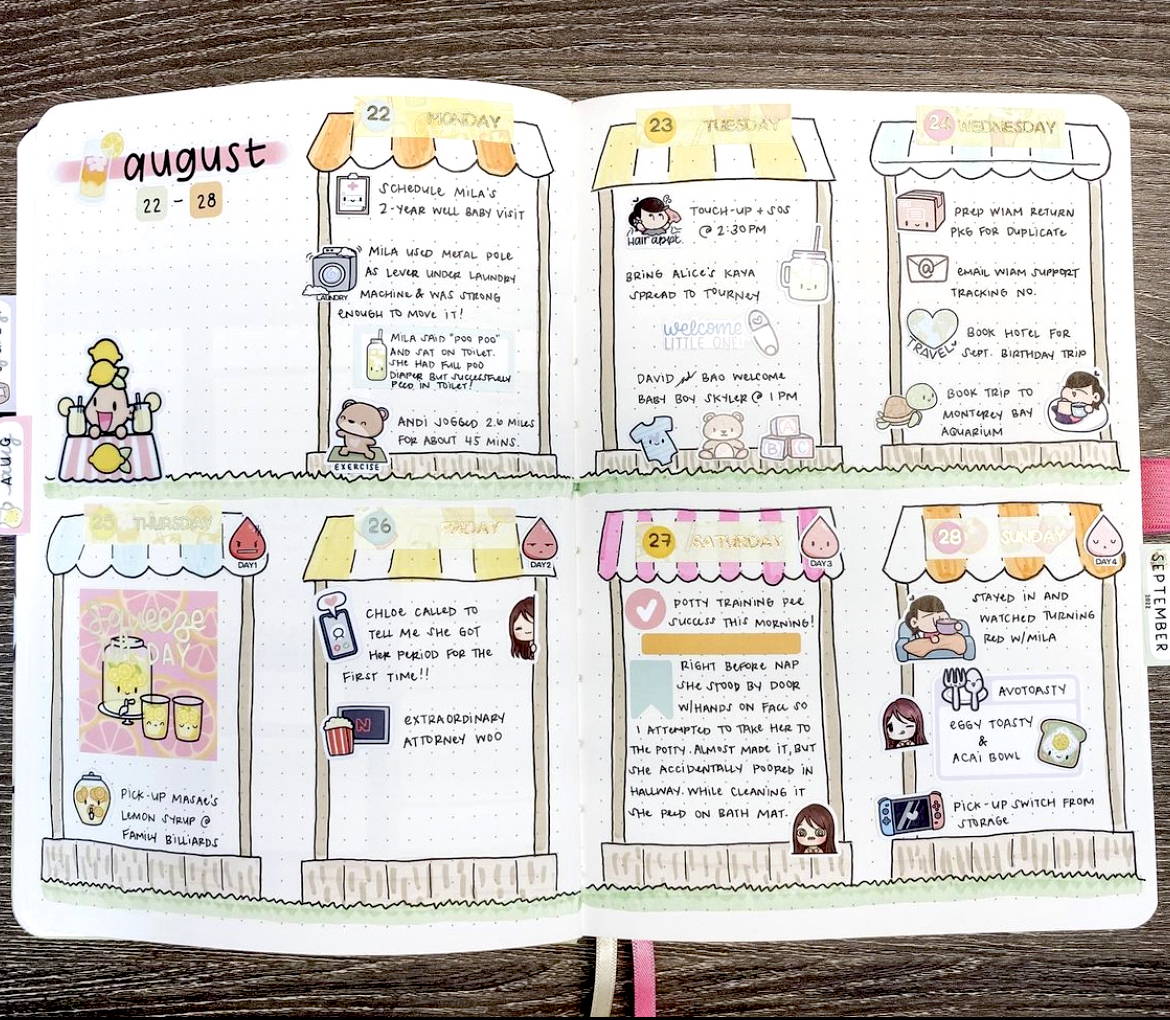 august
22 - 28
22 MONDAY
SCHEDULE MILA'S
2-YEAR WELL BABY VISIT
MILA USED METAL POLE
AS LEVER UNDER LAUNDRY
MACHINE & WAS STRONG
ENOUGH TO MOVE IT!
LAUNDRY
MILA SAID "POO POO"
AND SAT ON TOILET.
SHE HAD FULL POO
DIAPER BUT SUCCESSFULLY
PEED IN TOILET!
ANDI JOGGED 2.6 MILES
FOR ABOUT 45 MINS.
EXERCISE
23 TUESDAY
TOUCH-UP + SOS
@ 2:30 PM
Hair appt.
BRING ALICE'S KAYA
SPREAD TO TOURNEY
welcome
LITTLE ONE!
DAVID BAO WELCOME
BABY BOY SKYLER @ 1 PM
A
B C
24 WEDNESDAY
PREP WIAM RETURN
PKG FOR DUPLICATE
@
EMAIL WIAM SUPPORT
TRACKING NO.
TRAVEL
BOOK HOTEL FOR
SEPT. BIRTHDAY TRIP
BOOK TRIP TO
MONTEREY BAY
AQUARIUM
25 THURSDAY
DAY1
Squeeze
DAY
PICK-UP MASAE'S
LEMON SYRUP @
FAMILY BILLIARDS
26 FRIDAY
DAY2
CHLOE CALLED TO
TELL ME SHE GOT
HER PERIOD FOR THE
FIRST TIME!!
N
EXTRAORDINARY
ATTORNEY WOO
27 SATURDAY
DAY3
POTTY TRAINING PEE
SUCCESS THIS MORNING!
RIGHT BEFORE NAP
SHE STOOD BY DOOR
W/HANDS ON FACE SO
I ATTEMPTED TO TAKE HER TO
THE POTTY. ALMOST MADE IT, BUT
SHE ACCIDENTALLY POOPED IN
HALLWAY. WHILE CLEANING IT
SHE PEED ON BATH MAT.
28 SUNDAY
DAY4
STAYED IN AND
WATCHED TURNING
RED W/MILA
AVOTOASTY
EGGY TOASTY
&
ACAI BOWL
PICK-UP SWITCH FROM
STORAGE
AUG
SEPTEMBER